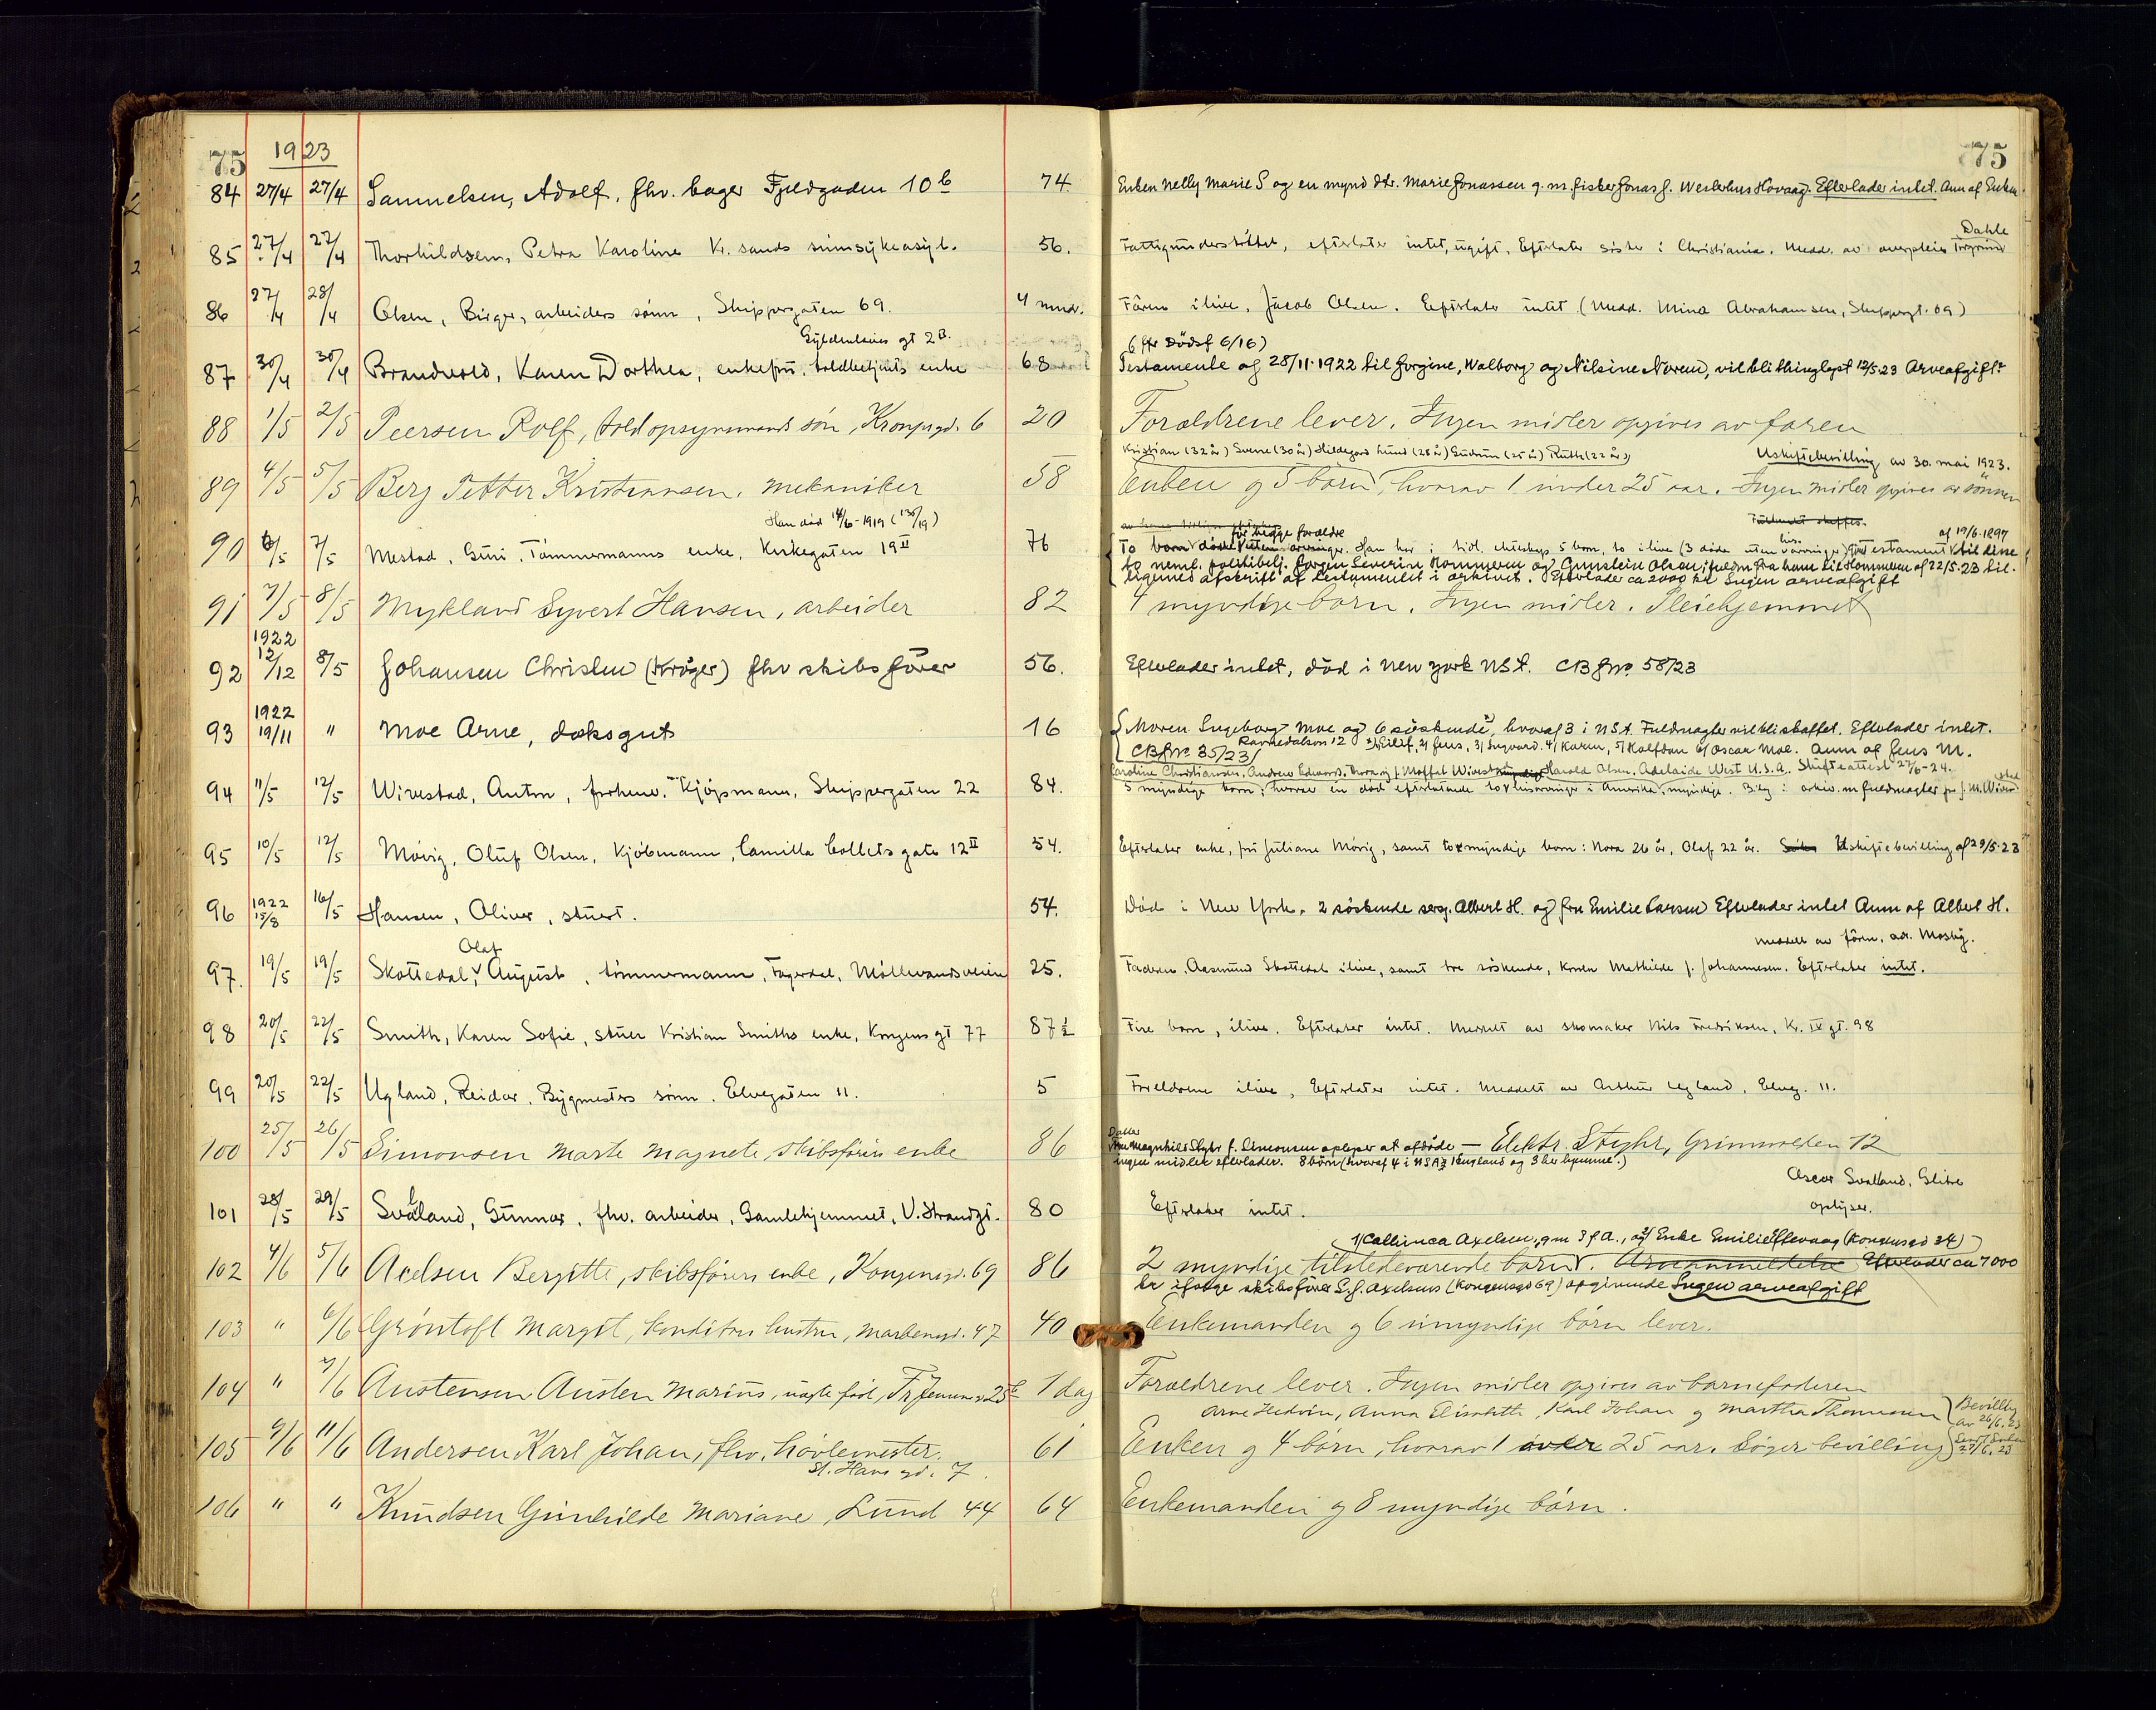 75 1923 75
84 27/4 27/4 Samuelsen, Adolf, fhv. bager Fjeldgaden 10b 74. Enken Nelly Marie S og en mynd dtr. Marie Jonassen g. m. fisker Jonas J. Westerhus Hovaag. Efterlader intet. Anm af Enken.
Dahle
85 27/4 27/4 Thorkildsen, Petra Karoline Kr. sands sinnsykeasyl. 56. Fattigunderstöttet, efterlater intet, ugift. Efterlater söster i Christiania. Medd. av overpleier
86 27/4 28/4 Olsen, Birger, arbeiders sønn, Skippergaten 69. 4 mnd. Faren ilive, Jacob Olsen. Efterlater intet (Medd. Mina Abrahamsen, Skippergt. 69)
Gyldenløves gt 2B. (fr Dödsf 6/16)
87 30/4 30/4 Brandvold, Karen Dorthea, enkefru, toldbetjents enke 68 Testamente af 28/11-1922 til Jorgine, Walborg og Nilsine Noreno, vil bli thinglyst 12/5.23 Arveafgift?
88 1/5 2/5 Peersen Rolf, toldopsynsmands søn, Kronpgd. 6 20 Forældrene lever. Ingen midler opgives av faren
Kristian (32 år) Sverre (30 år) Hildegard Lund (28 år) Gudrun (25 år) Ruth (22 år) Uskiftebevilling av 30. mai 1923.
89 4/5 5/5 Berg Petter Kristiansen, mekaniker 58 Enken og 5 börn, hvorav 1 under 25 aar. Ingen midler opgives av sönnen
Han död 14/6-1919 (130/19) för begge forældre af 19/6-1897
90 6/5 7/5 Mestad, Guri, Tömmermanns enke, Kirkegaten 19II 76 To barn döde uten arvinger. Han har i tidl. ekteskap 5 barn, to ilive (3 döde uten livs. arvinger) Testament til disse
to neml. politibetj. Jørgen Severin Hommeren og Gunstein Olsen; fuldm fra ham til Hommeren af 22/5.23 til-
ligemed afskrift af testamentet i arkivet. Efterlader ca 2000 kr Ingen arveafgift
91 7/5 8/5 Mykland Syvert Hansen, arbeider 82 4 myndige børn. Ingen midler. Pleiehjemmet
92 1922 12/12 8/5 Johansen Christen (Krøger) fhv skibsfører 56. Efterlader intet, död i New York USA. CB Jno. 58/23
93 1922 19/11 " Moe Arne, dæksgut 16 Moren Ingeborg Moe og 6 söskende, hvoraf 3 i USA. Fuldmagter vil bli skaffet. Efterlader intet.
CB Jno 35/23 Ravnedalsvn 12 1) Eilif, 2) Jens, 3) Ingvard. 4) Karen, 5) Halfdan 6) Oscar Moe. Anm af Jens M.
Caroline Christiansen, Andrew Edward, Moffat Wivestad Harald Olsen, Adelaide West U.S.A. Skifteattest 27/6-24.
94 11/5 12/5 Wivestad, Anton, forhenv. Kjöpmann, Skippergaten 22 84. 5 myndige barn, hvorav en död efterlatende to livsarvinger i Amerika, myndige. Beg i arkiv. m fuldmagter
95 10/5 12/5 Mövig, Oluf Olsen, Kjöbmann, Camilla Collets gate 12II 54. Efterlater enke, fru Juliane Mövig, samt to myndige barn: Nora 26 år, Olaf 22 år. Uskiftebevilling af 29/5-23
96 1922 15/8 16/5 Hansen, Oliver, stuert. 54. Död i New York. 2 söskende serg. Albert H. og fru Emilie Larsen Efterlader intet Anm af Albert H.
Olaf meddelt av faren, adr. Mosby.
97. 19/5 19/5 Skottedal, August, tömmermann, Fagerdal, Möllevandsveien 25. Faderen, Aasmund Skottedal ilive, samt tre söskende, konen Mathilde f. Johannesen. Efterlater intet.
98 20/5 22/5 Smith, Karen Sofie, stuer Kristian Smiths enke, Kongens gt 77 87½ Fire barn, ilive. Efterlater intet. Meddelt av skomaker Nils Fredriksen, Kr. IV gt. 98
99 20/5 22/5 Ugland, Reidar, Bygmesters sønn. Elvegaten 11. 5 Foreldrene ilive, Efterlater intet. Meddelt av Arthur Ugland, Elveg. 11.
Datter
100 25/5 26/5 Simonsen Marte Magnete, skibsførers enke 86 Fru Magnhild Styhr f. Simonsen oplyser at afdøde — Elektr. Styhr, Grimvolden 12
ingen midler efterlader. 8 börn (hvoraf 4 i USA, 1 England og 3 her hjemme.)
Oscar Svaland, Glitre
101 28/5 29/5 Svaland, Gunnar, fhv. arbeider, Gamlehjemmet, V. Strandgt. 80 Efterlater intet. oplyser.
1) Cathinca Axelsen, gm S J A., og 2) Enke Emilie Eftevaag (Kongensgd 34)
102 4/6 5/6 Axelsen Bergitte, skibsførers enke, Kongensgd. 69 86 2 myndige tilstedeværende børn. Arveanmeldelse Efterlader ca 7000
kr ifølge skibsfører S. J. Axelsens (Kongensgd 69) opgivende Ingen arveafgift
103 " 6/6 Grøntoft Margit, konditors hustru, Markensgd. 47 40 Enkemanden og 6 umyndige börn lever.
104 " 7/6 Austensen Austen Marius, uægte født, Tr Jensens g 25b 1 dag Forældrene lever. Ingen midler opgives av barnefaderen
Arne Hedvin, Anna Elisabeth, Karl Johan og Martha Thomine Bevilling av 26/6.23
105 9/6 11/6 Andersen Karl Johan, fhv. hövlemester. 61 Enken og 4 börn, hvorav 1 over 25 aar. Söger bevilling 27/6.23
St. Hans gd. 7.
106 " " Knudsen Gunhilde Mariane, Lund 44 64 Enkemanden og 8 myndige börn.